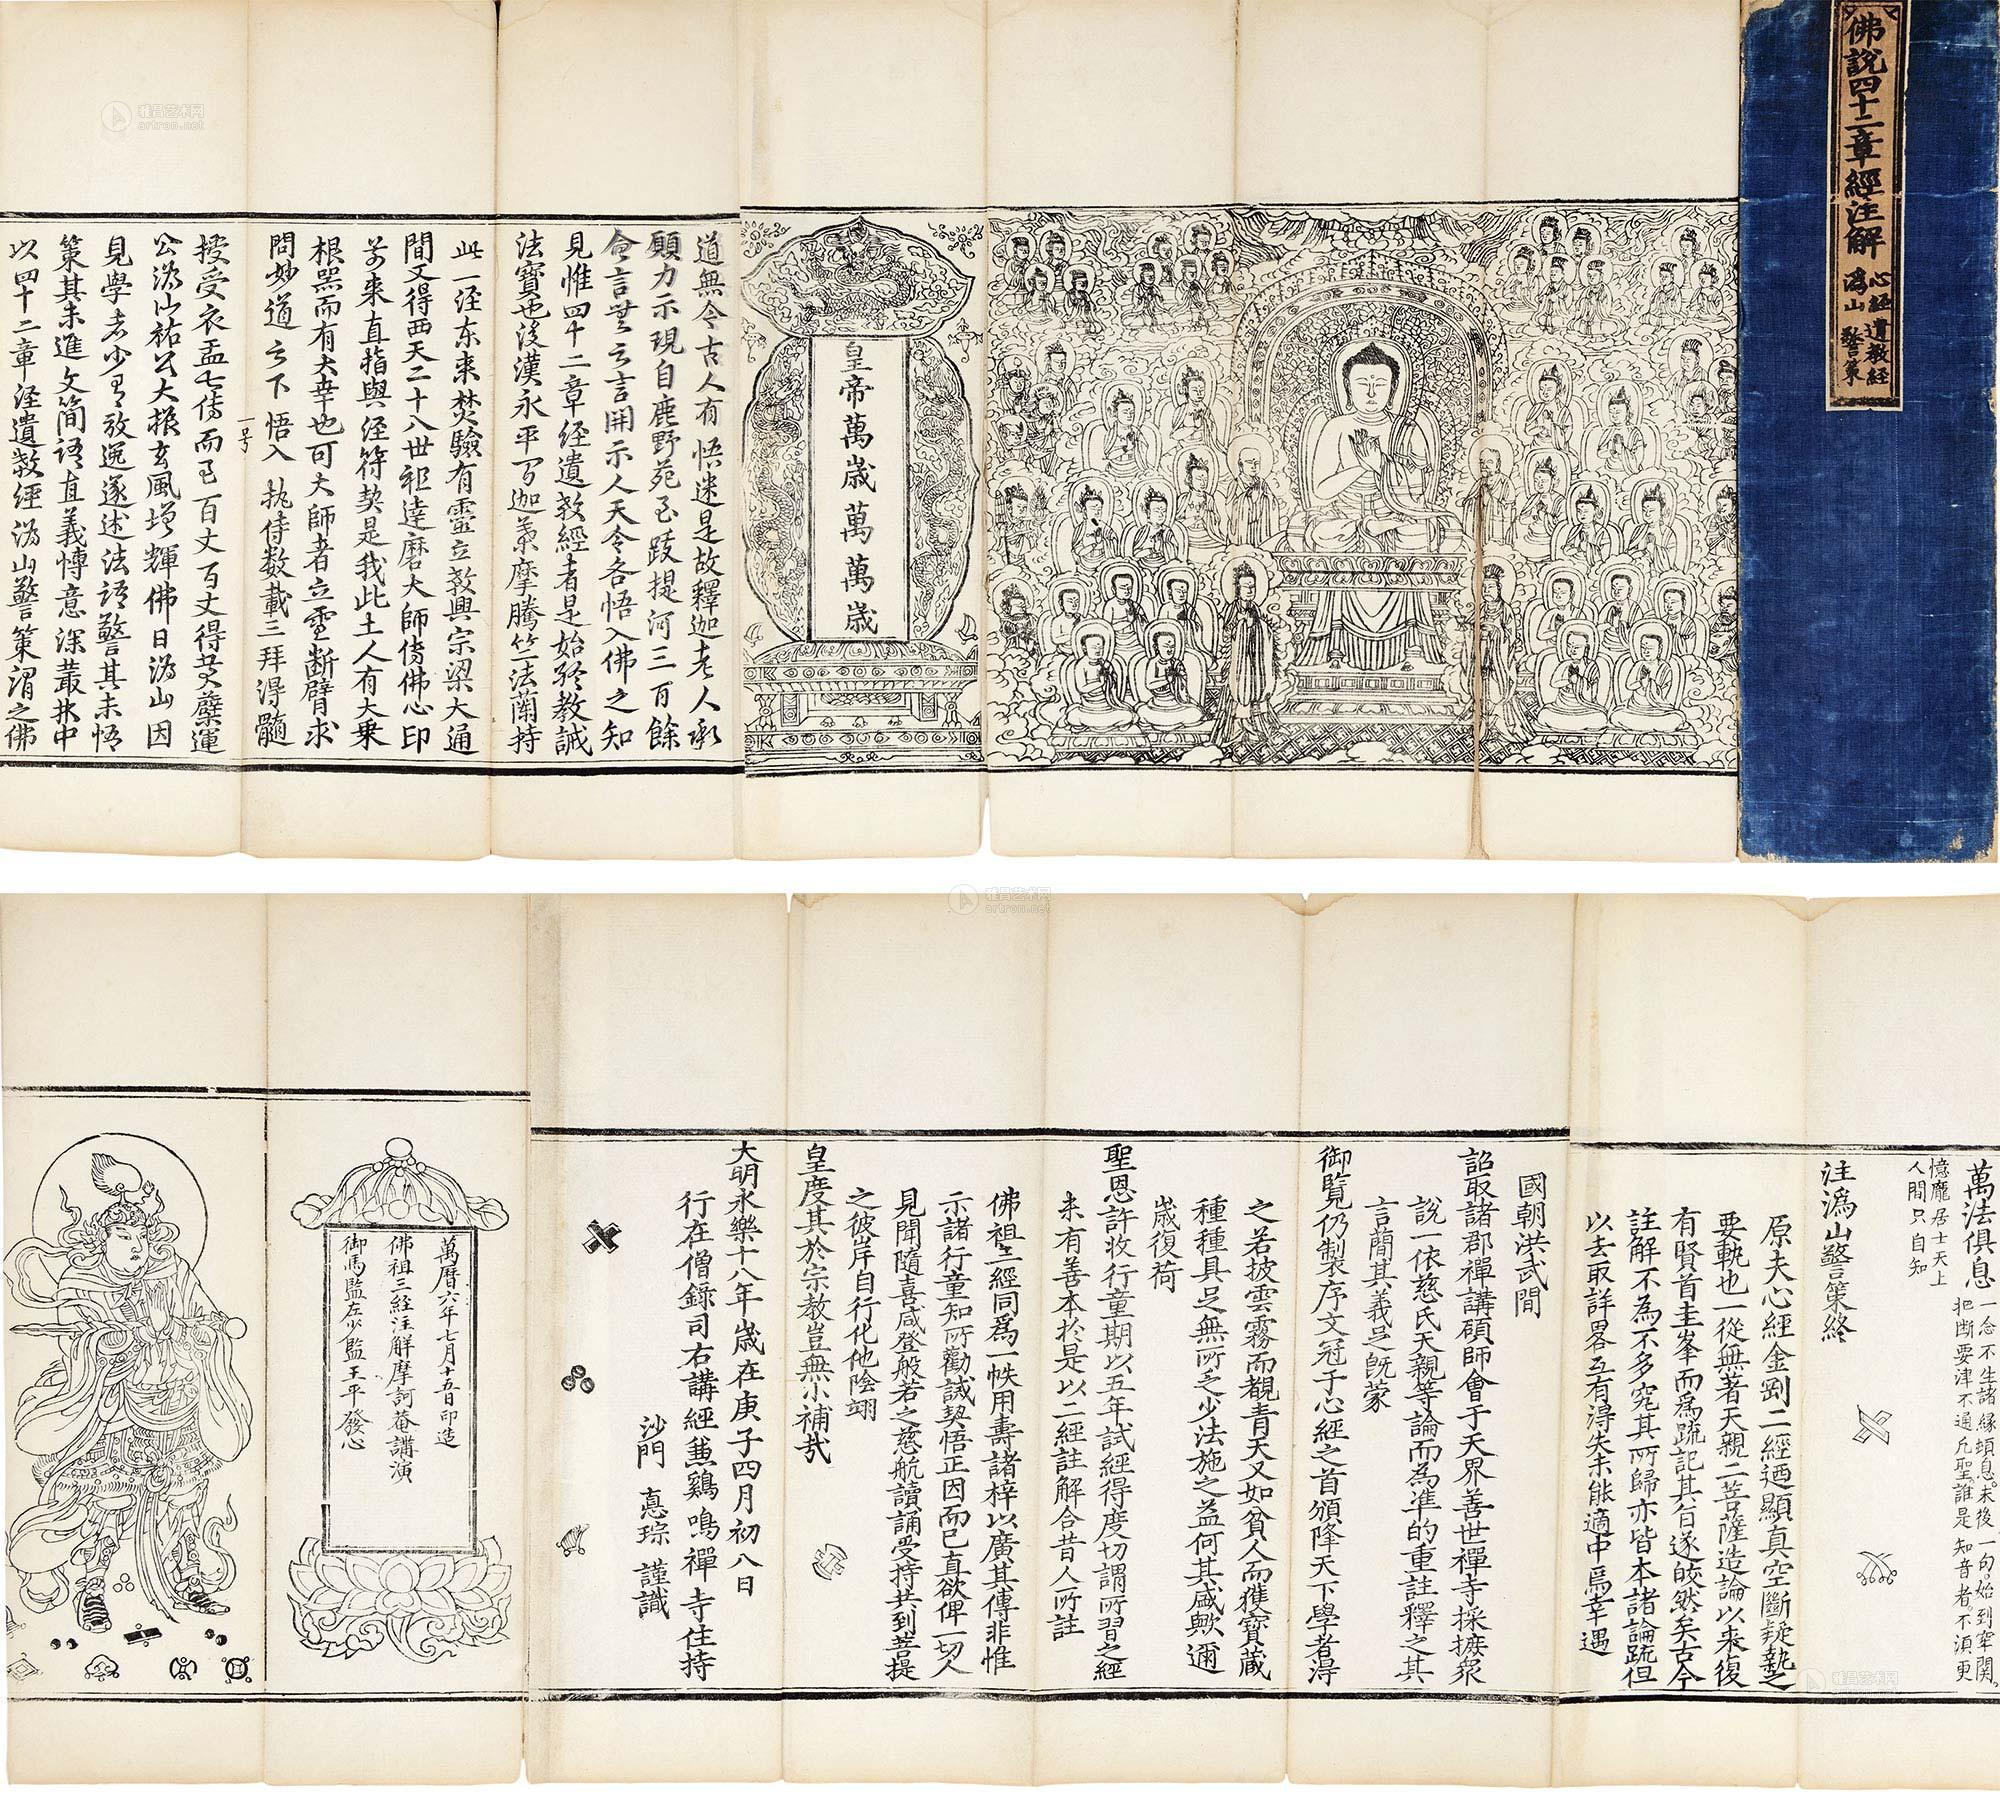 佛說四十二章經注解
心經 遺教經
溈山 警策
皇帝萬歲萬萬歲
道無今古人有悟迷是故釋迦老人承
願力示現自鹿野苑至跋提河三百餘
會言無言言開示人天令各悟入佛之知
見惟四十二章經遺教經者是始終教誡
法寶也後漢永平間迦葉摩騰竺法蘭持
此一經東來焚驗有靈立教興宗梁大通
間又得西天二十八世祖達磨大師傳佛心印
東來直指與經符契是我此土人有大乗
根器而有大幸也可大師者立雪断臂求
問妙道言下悟入執侍數載三拜得髓
一号
授受衣盂七傳而至百丈百丈得黄蘗運
公溈山祐公大振玄風增輝佛日溈山因
見學者少有放逸遂述法語警其未悟
策其未進文簡語直義愽意深叢林中
以四十二章經遺教經溈山警策謂之佛
萬法俱息一念不生諸緣頓息末後一句始到牢関
把断要津不通凡聖誰是知音者不湏更
憶龐居士天上
人間只自知
注溈山警策終
原夫心經金剛二經廼顯真空斷疑執之
要軌也一從無著天親二菩薩造論以来復
有賢首圭峯而爲疏記其旨遂皎然矣古今
註解不為不多究其所歸亦皆本諸論疏但
以去取詳畧互有得失未能適中焉幸遇
國朝洪武間
詔取諸郡禪講碩師會于天界善世禪寺採摭衆
說一依慈氏天親等論而為凖的重註釋之其
言簡其義足既蒙
御覽仍製序文冠于心經之首頒降天下學者得
之若披雲霧而覩青天又如貧人而獲寶藏
種種具足無所乏少法施之益何其盛歟邇
歲復荷
聖恩許收行童期以五年試經得度切謂所習之經
未有善本於是以二經註解合昔人所註
佛祖三經同為一帙用壽諸梓以廣其傳非惟
示諸行童知所勸誡契悟正因而已直欲俾一切人
見聞隨喜咸登般若之慈航讀誦受持共到菩提
之彼岸自行化他陰翊
皇度其於宗教豈無小補哉
大明永樂十八年歲在庚子四月初八日
行在僧錄司右講經兼鷄鳴禪寺住持
沙門 惪琮 謹識
萬曆六年七月十五日印造
佛祖三経注解摩訶菴講演
御馬監左少監王平發心
雅昌艺术网
artron.net
雅昌艺术网
artron.net
雅昌艺术网
artron.net